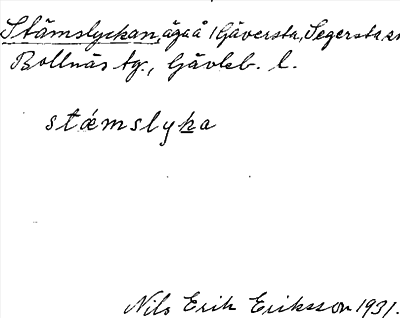 Stämslyckan, äga å 1 Gäversta, Segersta sn
Bollnäs tg., Gävleb. l.
stǽmslyka
Nils Erik Eriksson 1931.